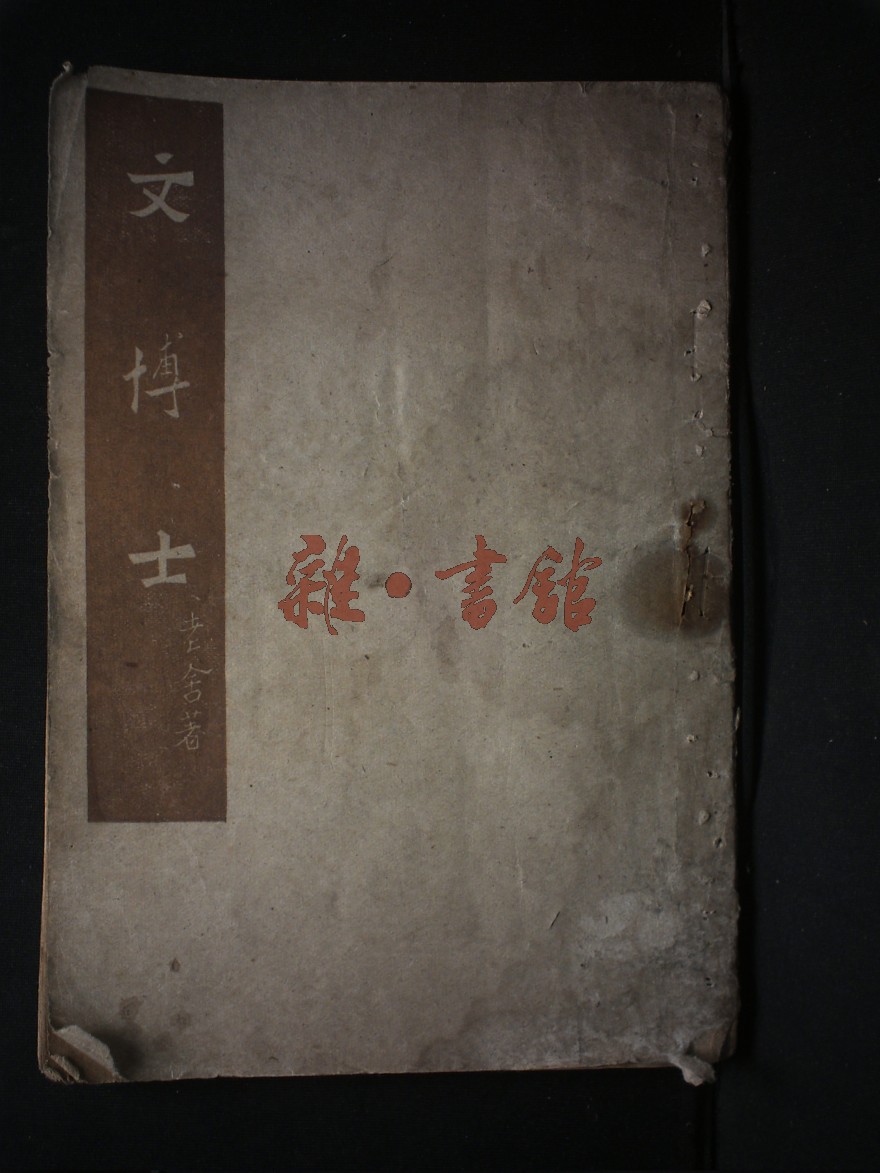 文博士
老舍著
雜·書館